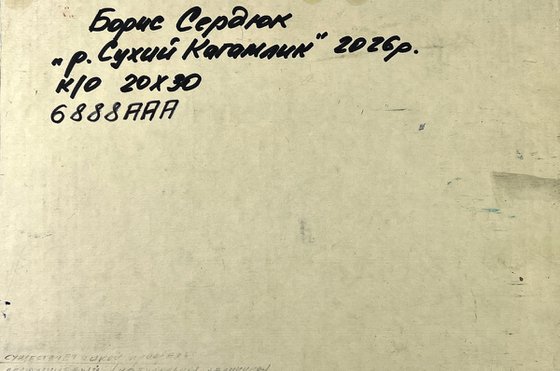 Борис Сердюк
"р. Сухий Кагамлик" 2026р.
к/о 20х30
6888AAA